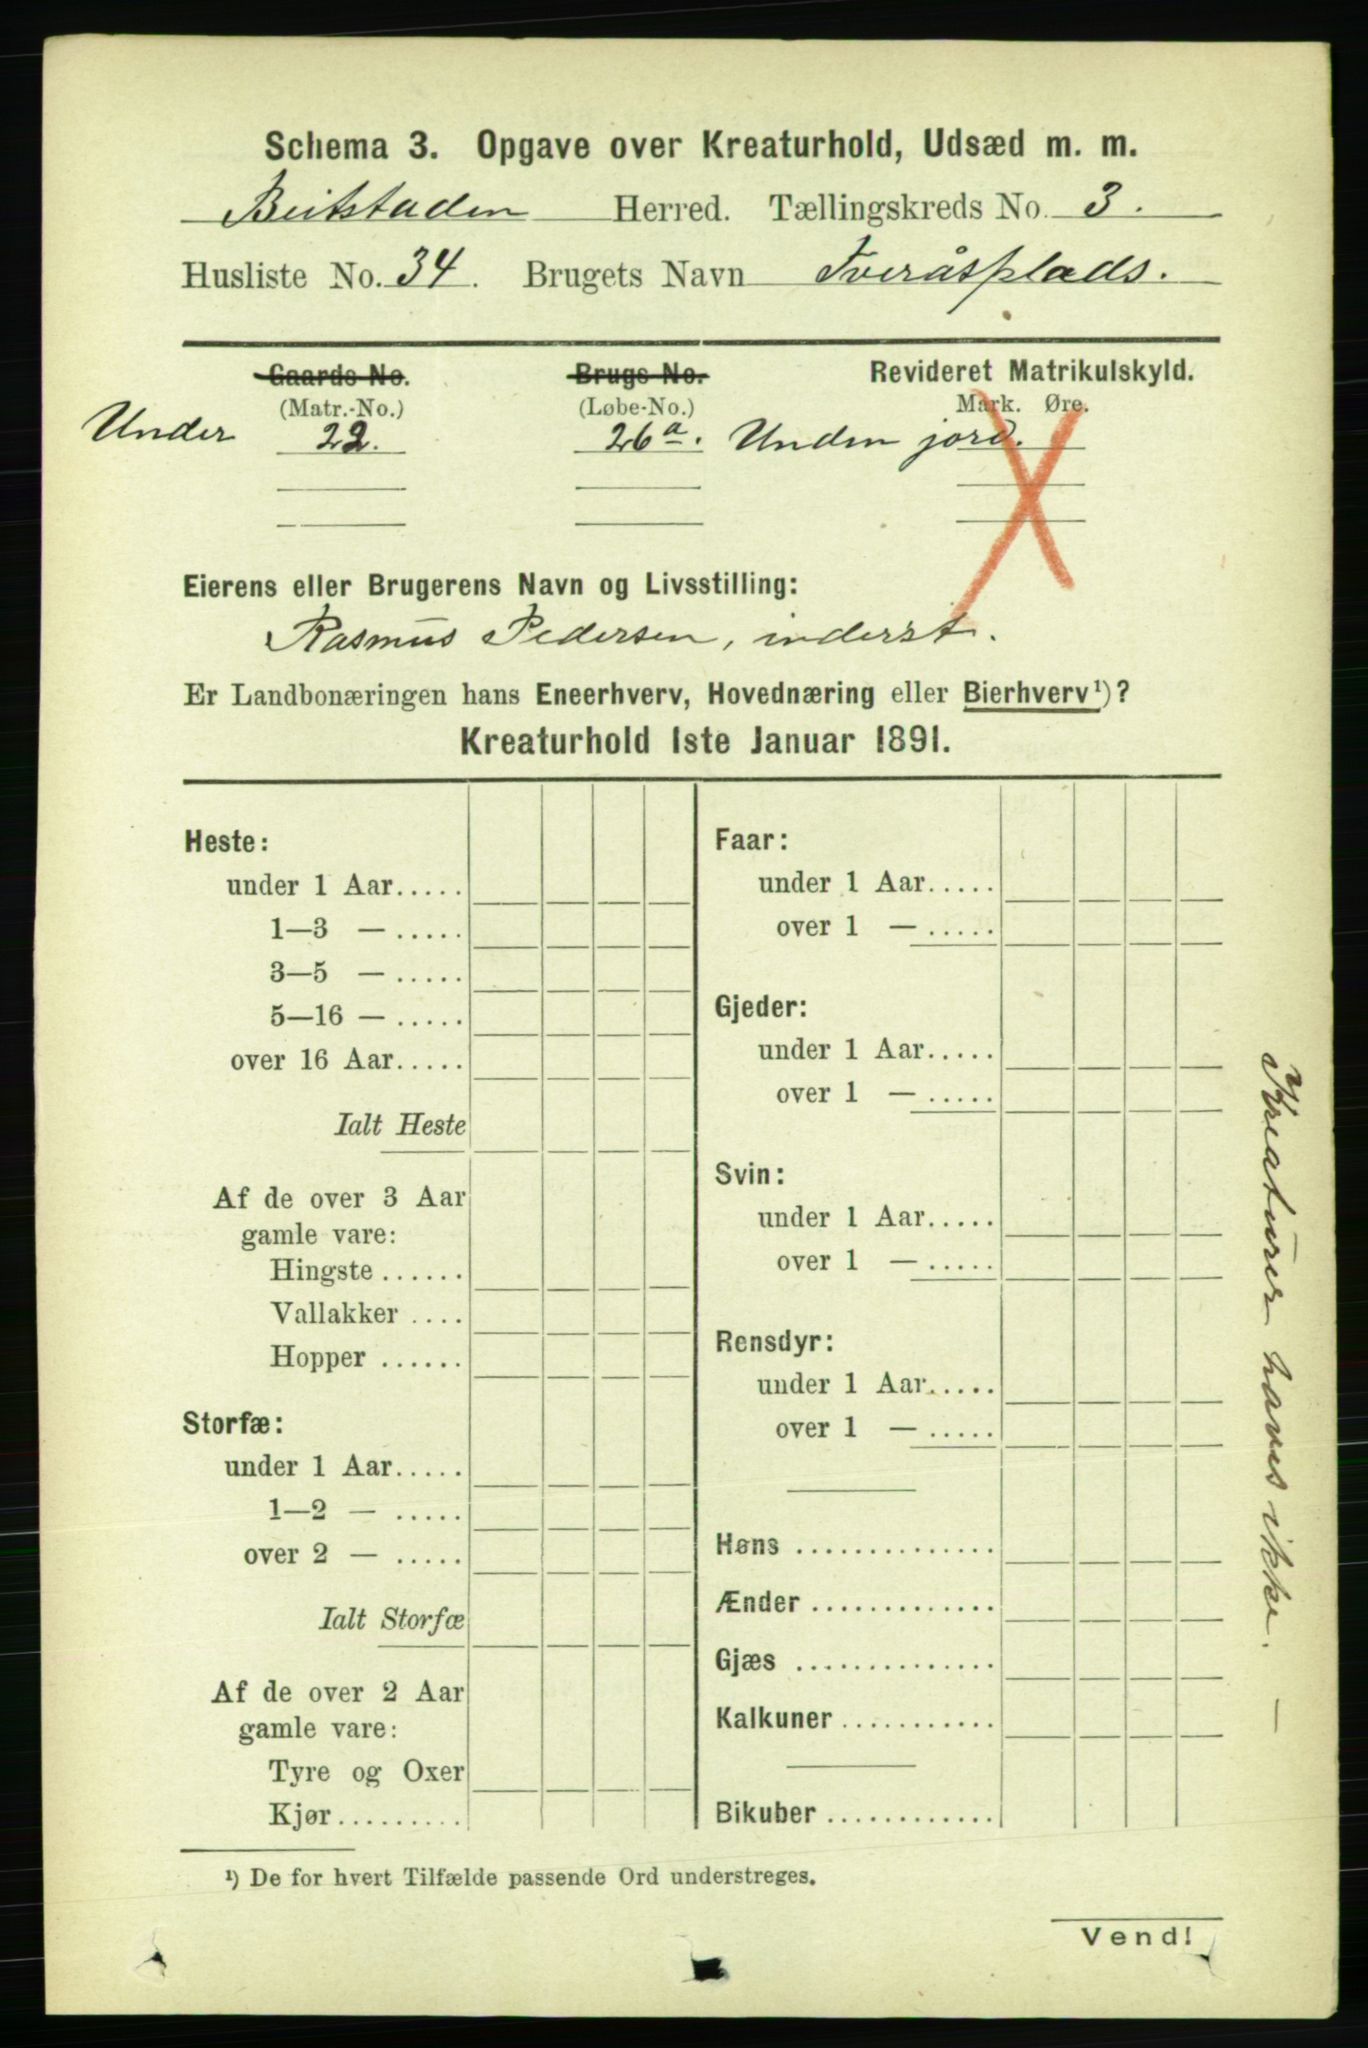 Schema 3. Opgave over Kreaturhold, Udsæd m. m.
Beitstaden Herred. Tællingskreds No. 3.
Husliste No. 34. Brugets Navn Tveråsplads.
Gaards No. Brugs No. Revideret Matrikulskyld.
(Matr.-No.) (Løbe-No.) Mark. Øre.
Under 22. 26a. Uden jord.
Eierens eller Brugerens Navn og Livsstilling:
Rasmus Pedersen, inderst.
Er Landbonæringen hans Eneerhverv, Hovednæring eller Bierhverv¹)?
Kreaturhold 1ste Januar 1891.
Heste:
under 1 Aar.....
1—3 — .....
3—5 — .....
5—16 — .....
over 16 Aar.....
Ialt Heste
Af de over 3 Aar
gamle vare:
Hingste ......
Vallakker ....
Hopper ......
Storfæ:
under 1 Aar.....
1—2 — .....
over 2 — .....
Ialt Storfæ
Af de over 2 Aar
gamle vare:
Tyre og Oxer
Kjør.........
Faar:
under 1 Aar.....
over 1 — .....
Gjeder:
under 1 Aar.....
over 1 — .....
Svin:
under 1 Aar.....
over 1 — .....
Rensdyr:
under 1 Aar.....
over 1 — .....
Høns ..............
Ænder .............
Gjæs ..............
Kalkuner ...........
Bikuber ............
Kreaturer haves ikke. —
¹) De for hvert Tilfælde passende Ord understreges.
Vend!